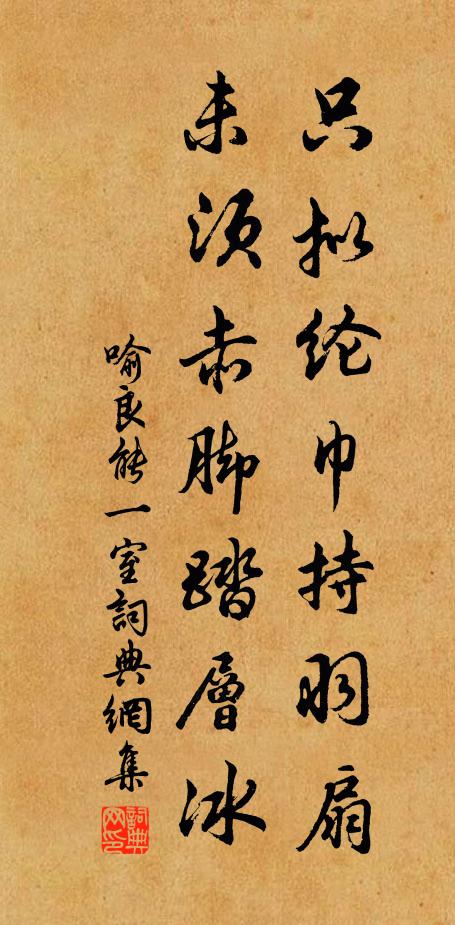 只拟纶巾持羽扇
未须赤脚踏层冰
喻良能一室詞典網集
詞典网印